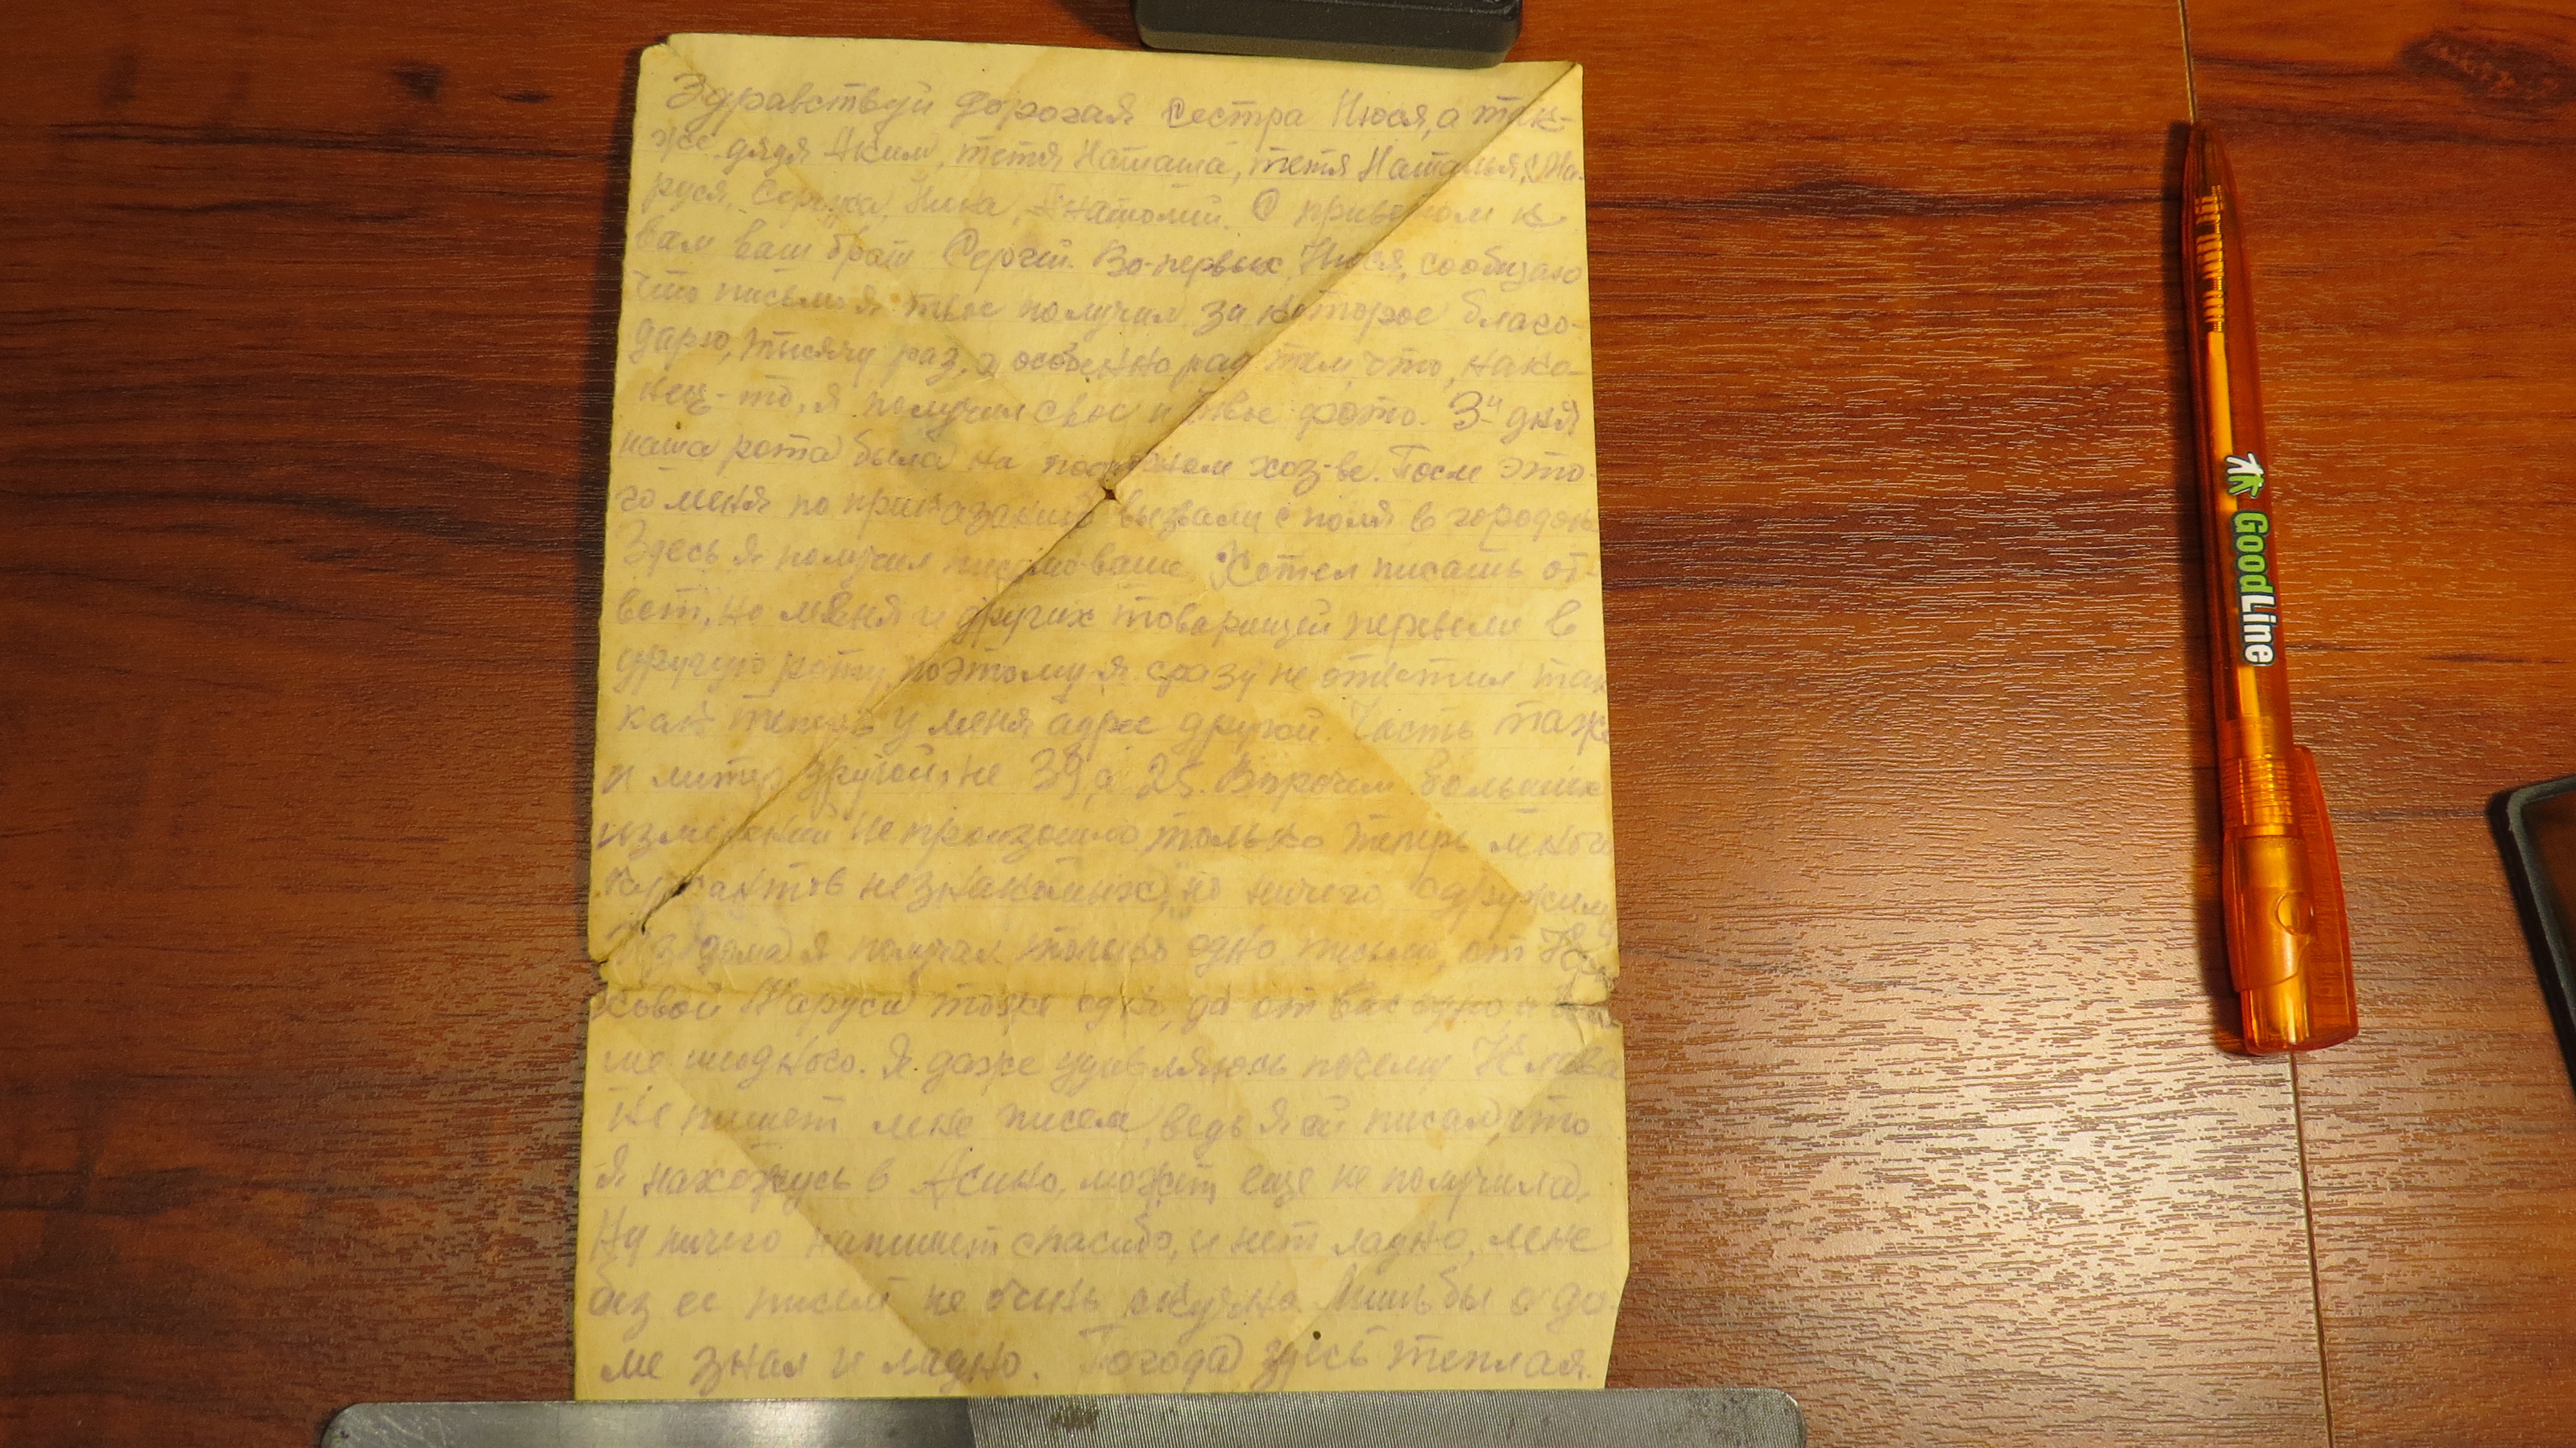 Здравствуй дорогая сестра Нюся, а так-
же дядя Аким, тетя Наташа, тетя Наталья, Ма-
руся, Сережка, Нина, Анатолий. С приветом к
вам ваш брат Сергей. Во-первых, Нюся, сообщаю
что письмо я твое получил за которое благо-
дарю, тысячу раз, а особенно рад тем, что, нако-
нец-то, я получил свое и твое фото. 3 дня
наша рота была на подсобном хоз-ве. После это-
го меня по приказанию вызвали с поля в городок
Здесь я получил письмо ваше. Хотел писать от-
вет, но меня и других товарищей перевели в
другую роту, поэтому я сразу не ответил так
как теперь у меня адрес другой. Часть таже
и литер другой, не 39, а 25. Впрочем больших
изменений не произошло, только теперь много
курсантов незнакомых, но ничего сдружимся
Из дома я получил только одно письмо, от
ховой Маруси тоже одно, да от вас одно, а
ше ниодного. Я даже удивляюсь почему Клава
не пишет мне писем, ведь я ей писал, что
я нахожусь в Асино, может еще не получила.
Ну ничего напишет спасибо, и нет ладно, мне
без ее писем не очень скучно. Лишь бы о до-
ме знал и ладно. Погода здесь теплая.
GoodLine